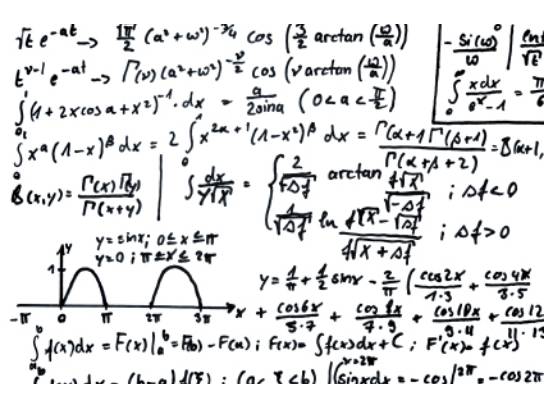 √t e^-at → √π/2 (a²+ω²)^-3/4 cos (3/2 arctan (ω/a))
t^ν-1 e^-at → Γ(ν) (a²+ω²)^-ν/2 cos (ν arctan (ω/a))
- Si(ω)/ω
∫ x dx/(e^x - 1) = π
∫₀¹ (1 + 2x cos a + x²)^-1 · dx = a/(2 sin a) (0 < a < π/2)
∫₀¹ x^α (1-x)^β dx = 2 ∫₀¹ x^2α+1 (1-x²)^β dx = Γ(α+1) Γ(β+1)/Γ(α+β+2) = B(α+1,
B(x,y) = Γ(x) Γ(y)/Γ(x+y)
∫ dx/Y√X = { 2/√-Δf arctan f√X/√-Δf ; Δf < 0
1/√Δf ln f√X - √Δf/f√X + Δf ; Δf > 0
y = sin x ; 0 ≤ x ≤ π
y = 0 ; π ≤ x ≤ 2π
y
1
-π 0 π 2π 3π x
y = 1/π + 1/2 sin x - 2/π (cos 2x/1·3 + cos 4x/3·5
+ cos 6x/5·7 + cos 8x/7·9 + cos 10x/9·11 + cos 12/11·13
∫ₐᵇ f(x) dx = F(x)|ₐᵇ = F(b) - F(a) ; F(x) = ∫ f(x) dx + C ; F'(x) = f(x)
x = 2π
∫ sin x dx = - cos|^2π = - cos 2π